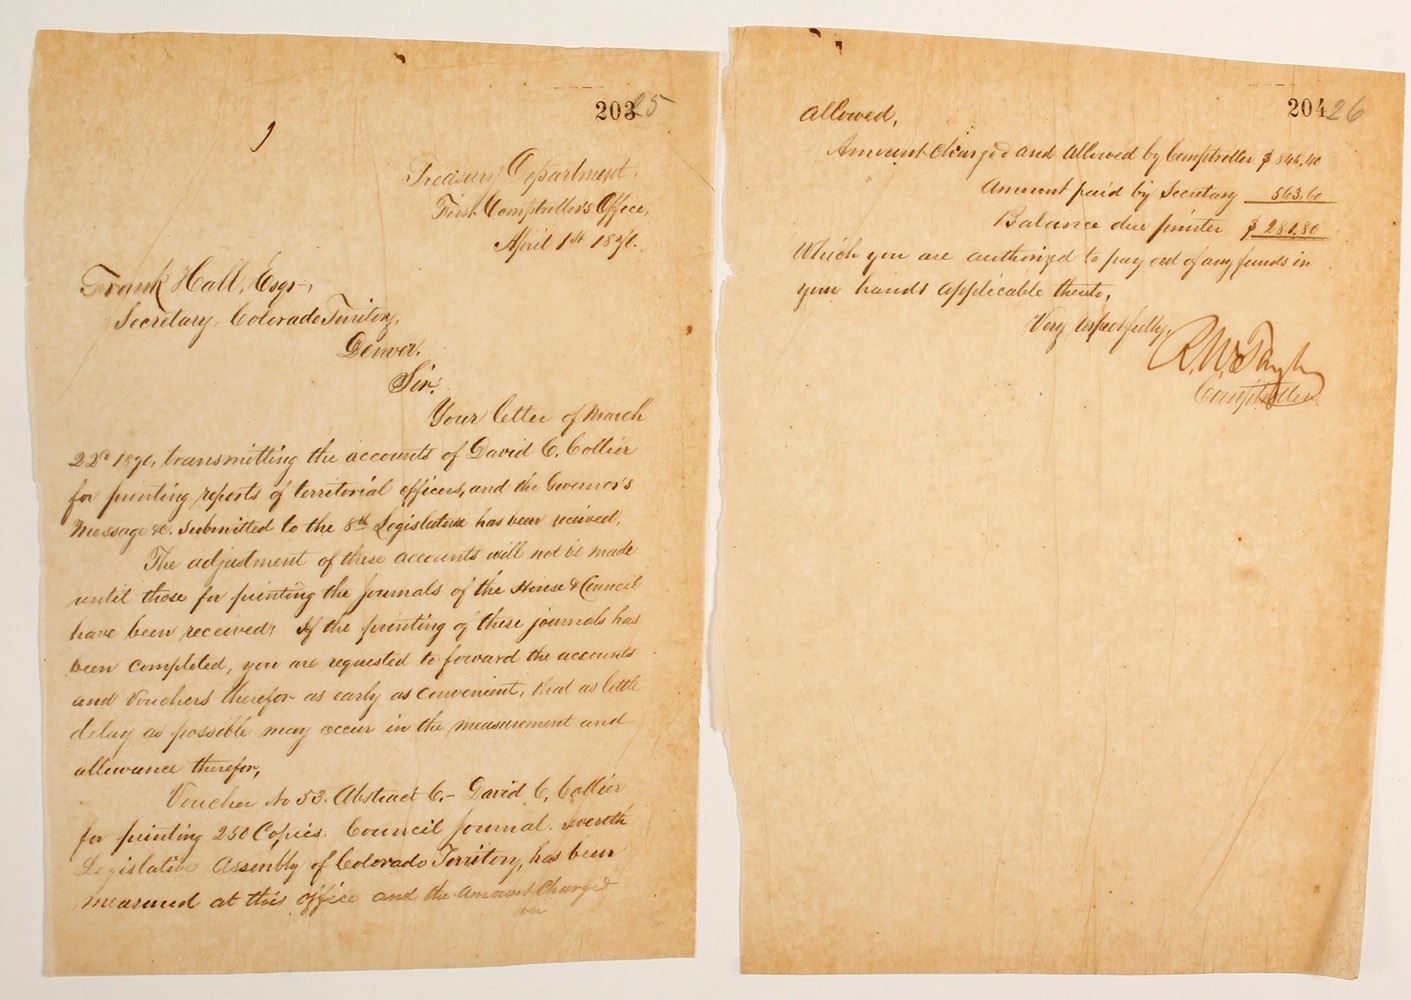 203 25
Treasury Department,
First Comptroller's Office,
April 1st 1870.
Frank Hall, Esqr.,
Secretary, Colorado Territory,
Denver.
Sir:
Your letter of March
22d 1870, transmitting the accounts of David C. Collier
for printing reports of territorial officers, and the Governor's
Message &c. submitted to the 8th Legislature has been received.
The adjustment of these accounts will not be made
until those for printing the Journals of the House & Council
have been received. If the printing of these journals has
been completed, you are requested to forward the accounts
and vouchers therefor as early as convenient, that as little
delay as possible may occur in the measurement and
allowance therefor.
Voucher No 53. Abstract C.- David C. Collier
for printing 250 Copies. Council Journal. Seventh
Legislative Assembly of Colorado Territory, has been
measured at this office and the amount charged
204 26
allowed,
Amount charged and allowed by Comptroller $845.40
Amount paid by Secretary 563.60
Balance due printer $281.80
Which you are authorized to pay out of any funds in
your hands applicable thereto,
Very respectfully,
R. W. Tayler
Comptroller.